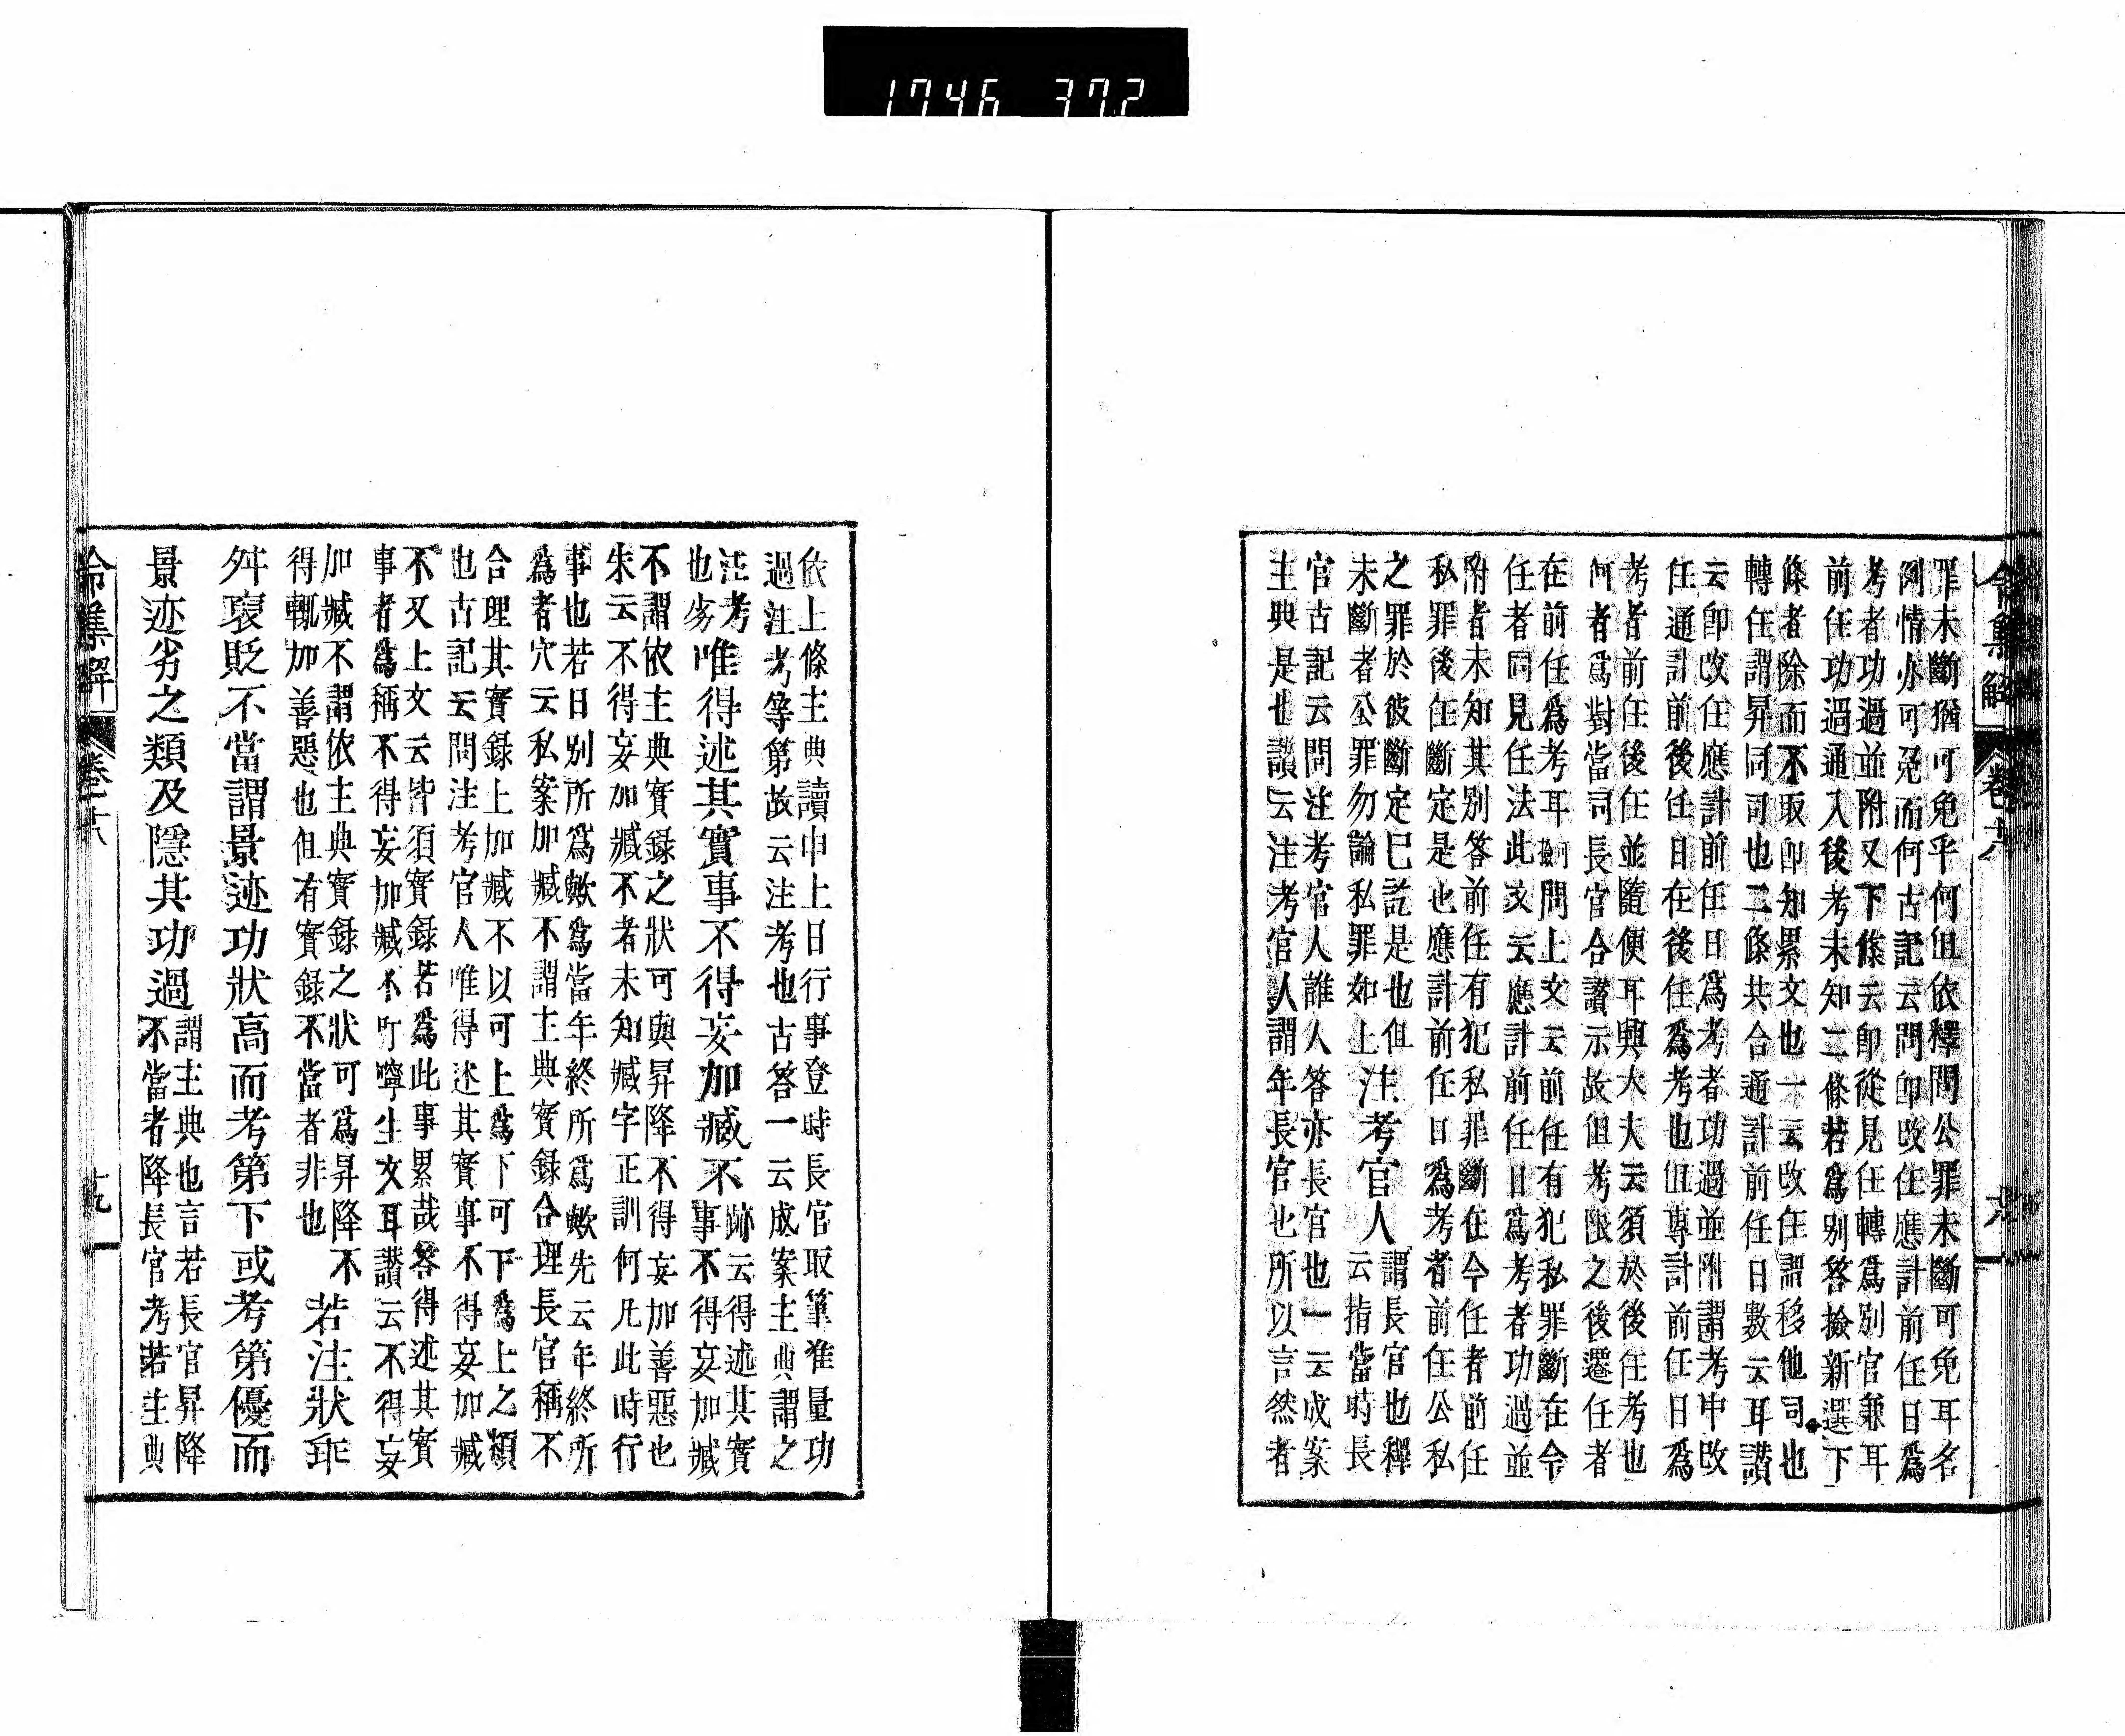 1746 372
罪未斷猶可免乎何但依釋問公罪未斷可免耳名
例情亦可免而何古記云問卽改任應計前任日爲
考者功過並附又下條云卽從見任轉爲別官兼耳
前任功過通入後考未知二條若爲別答撿新選下
條者除而不取卽知累文也一云改任謂移他司也
轉任謂昇同司也二條共合通計前任日數云耳讃
云卽改任應計前任日爲考者功過並附謂考中改
任通計前後任日在後任爲考也但專計前任日爲
考者前任後任並隨便耳興大夫云須於後任考也
何者爲對當司長官合讃示故但考限之後遷任者
在前任爲考耳 問上文云前任有犯私罪斷在今
任者同見任法此文云應計前任日爲考者功過並
附者未知其別答前任有犯私罪斷在今任者前任
私罪後任斷定是也應計前任日爲考者前任公私
之罪於彼斷定已訖是也但
未斷者公罪勿論私罪如上
注考官人
謂長官也釋
云指當時長
官古記云問注考官人誰人答亦長官也一云成案
主典是也讃云注考官人謂年長官也所以言然者
令集解 卷 六
依上條主典讀申上日行事登時長官取筆准量功
過注考等第故云注考也古答一云成案主典謂之
注考
也
唯得述其實事不得妄加臧不
跡云得述其實
事不得妄加臧
不謂依主典實録之狀可與昇降不得妄加善惡也
朱云不得妄加臧不者未知臧字正訓何凡此時行
事也若日別所爲歟爲當年終所爲歟先云年終所
爲者穴云私案加臧不謂主典實録合理長官稱不
合理其實録上加臧不以可上爲下可下爲上之類
也古記云問注考官人唯得述其實事不得妄加臧
不又上文云皆須實録若爲此事累哉答得述其實
事者爲稱不得妄加臧不叮嚀生文耳讃云不得妄
加臧不謂依主典實録之狀可爲昇降不
得輒加善惡也但有實録不當者非也
若注狀乖
舛褒貶不當謂景迹功狀高而考第下或考第優而
景迹劣之類及隱其功過
謂主典也言若長官昇降
不當者降長官考若主典
令集解 卷 十九